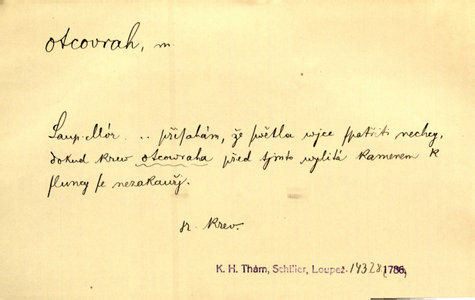 otcovrah, m.
Loup. Mór. .. přisahám, že swětla wjce spatřiti nechcy,
dokud krew otcowraha před tjmto wylitá kamenem k
sluncy se nezakauřj.
p. krev.
K. H. Thám, Schiller, Loupež. 143 28 (1786,